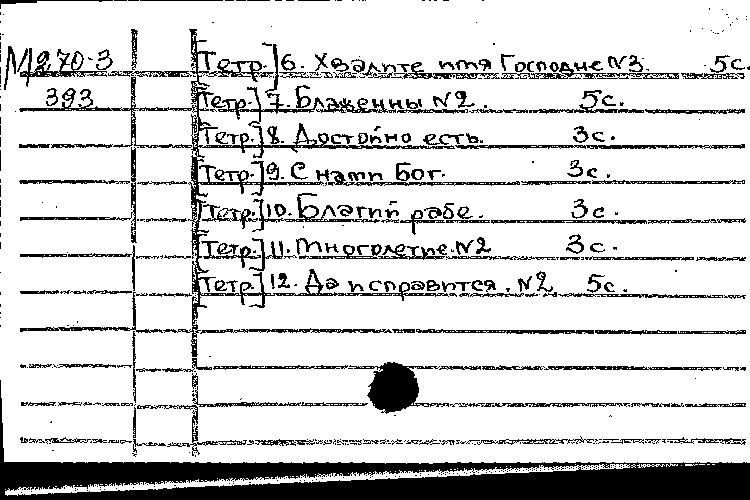 М270-3 [Тетр.] 6. Хвалите имя Господне №3. 5с.
393 [Тетр.] 7. Блаженны №2. 5с.
[Тетр.] 8. Достойно есть. 3с.
[Тетр.] 9. С нами Бог. 3с.
[Тетр.] 10. Благий рабе. 3с.
[Тетр.] 11. Многолетие №2 3с.
[Тетр.] 12. Да исправится. №2. 5с.